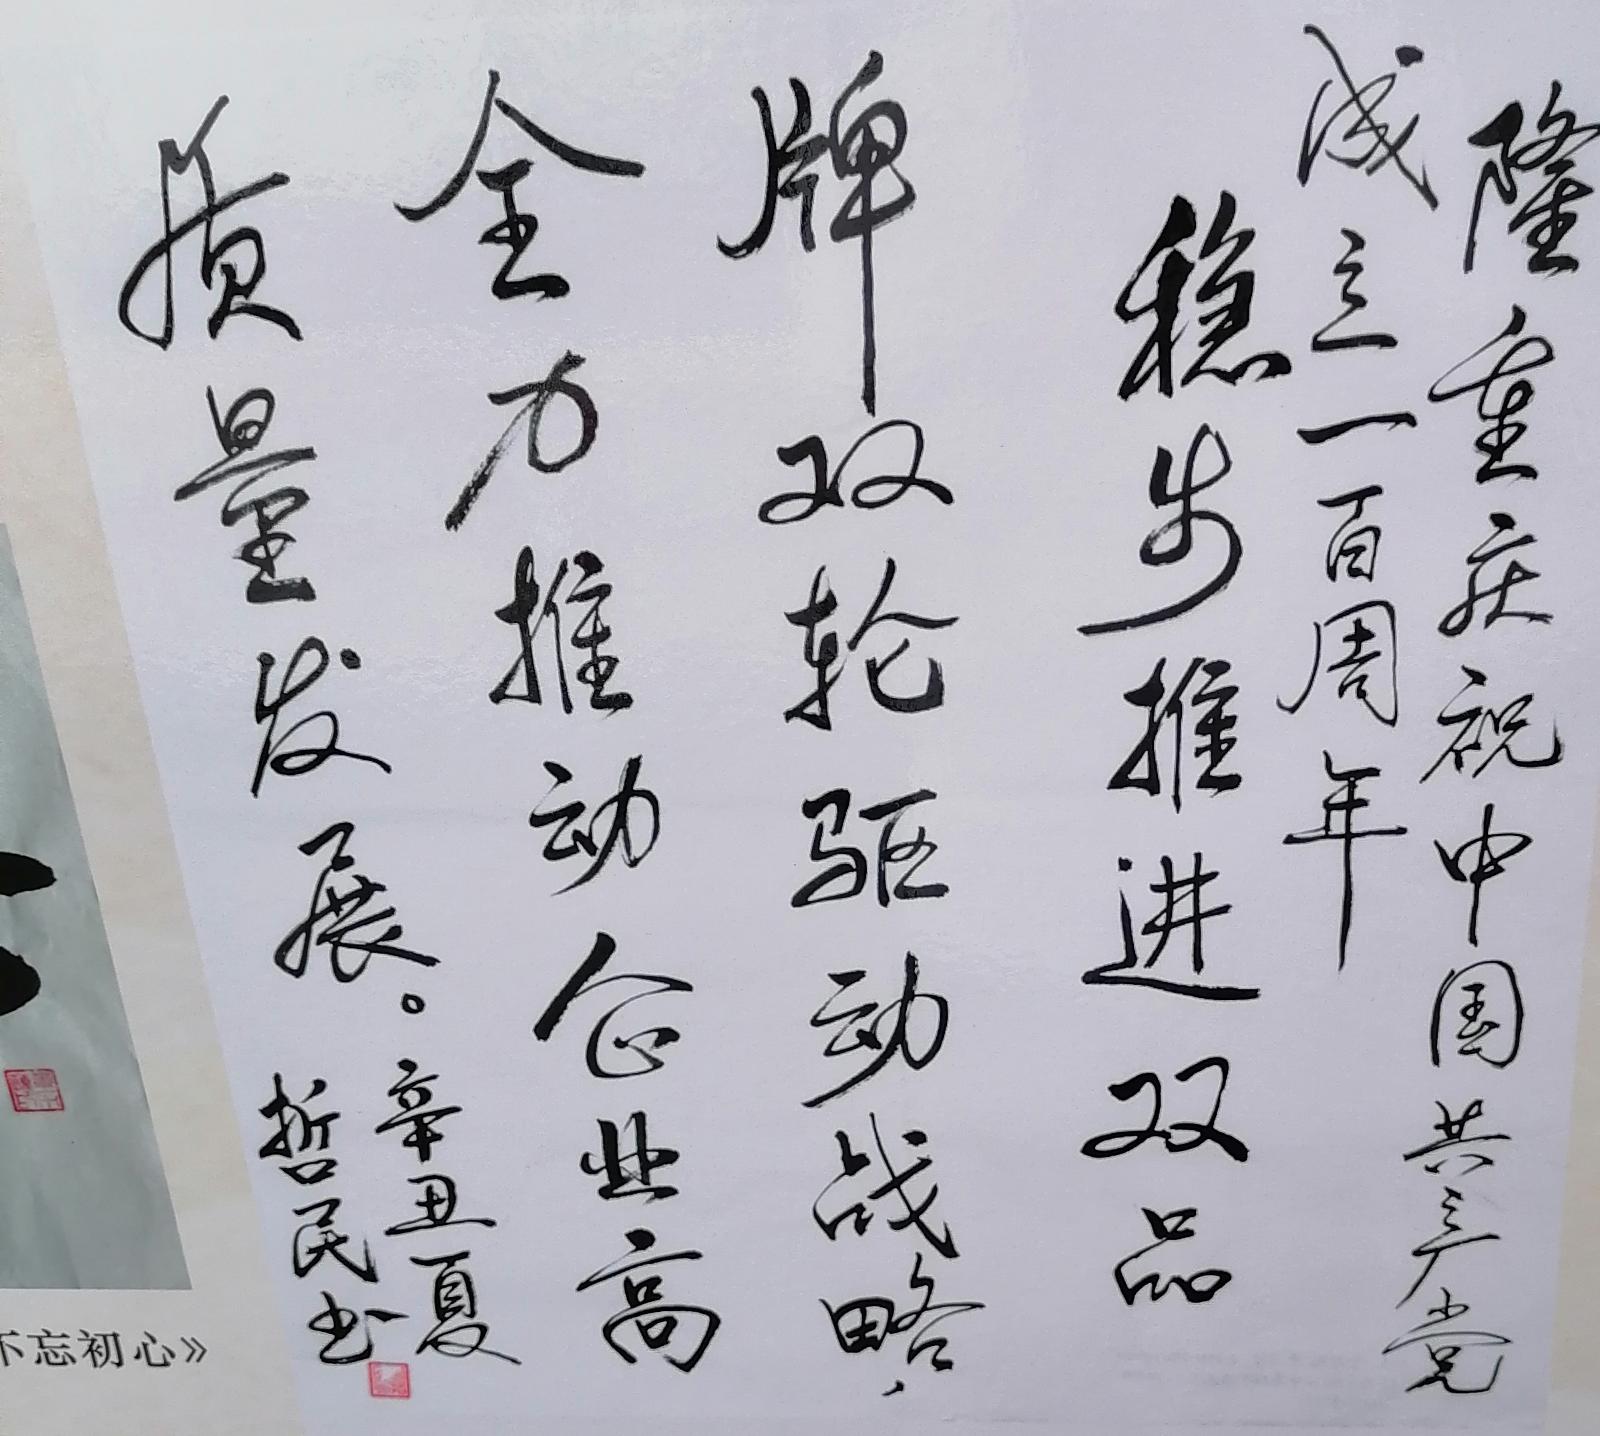 隆重庆祝中国共产党
成立一百周年
稳步推进双品
牌双轮驱动战略，
全力推动企业高
质量发展。
辛丑夏
哲民书
不忘初心》